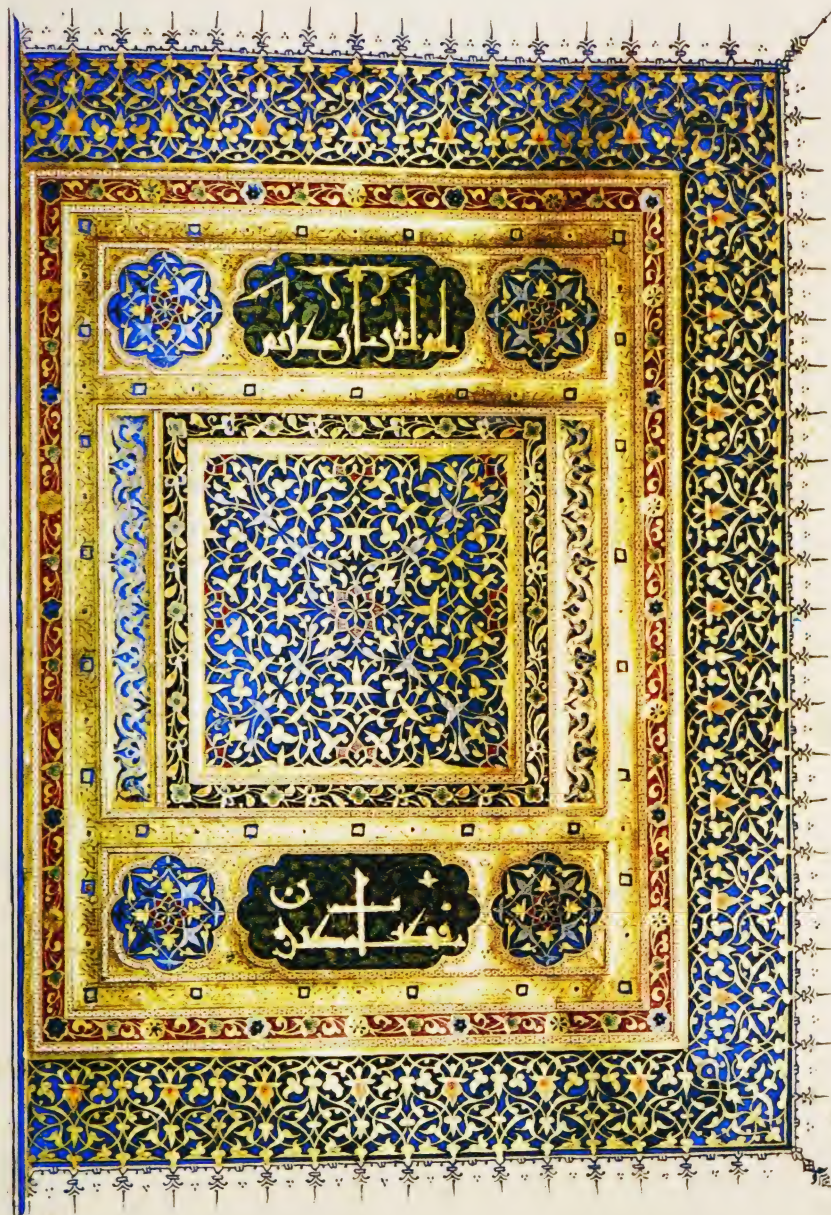 انه لقران كريم
في كتب مكنون